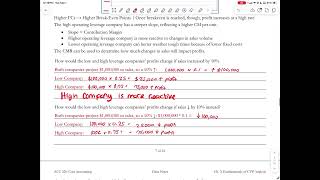 Higher FCs → Higher Break-Even Points. Once breakeven is reached, though, profit increases at a fast rate
The high operating leverage company has a steeper slope, reflecting a higher CM per unit.
• Slope = Contribution Margin
• Higher operating leverage company is more reactive to changes in sales volume
• Lower operating leverage company can better weather tough times because of lower fixed costs
The CMR can be used to determine how much changes in sales will impact profits.
How would the low and high leverage companies' profit change if sales increased by 10%?
Both companies project $1,000,000 in sales, so a 10% ↑
Low Company: $100,000 × 0.25 = $25,000 ↑ profit
High Company: $100,000 × 0.75 = 75,000 ↑ profit
High Company is more reactive
How would the low and high leverage companies' profits change if sales ↓ by 10% instead?
Both companies project $1,000,000 in sales, so a 10% ↓
Low Company: 100,000 × 0.25 = 25,000 ↓ profit
High Company: × 0.75 = 75,000 ↓ profit
Class Notes